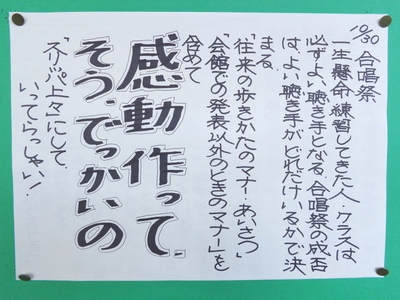 10/30 合唱祭
一生懸命練習してきた人・クラスは
必ずよい聴き手となる。合唱祭の成否
は、よい聴き手がどれだけいるかで決
まる。
「往来の歩きかたのマナー・あいさつ」
「会館での発表以外のときのマナー」を
含めて
感動作って、
そう、でっかいの
「スリッパ上々」にして、
いってらっしゃい!